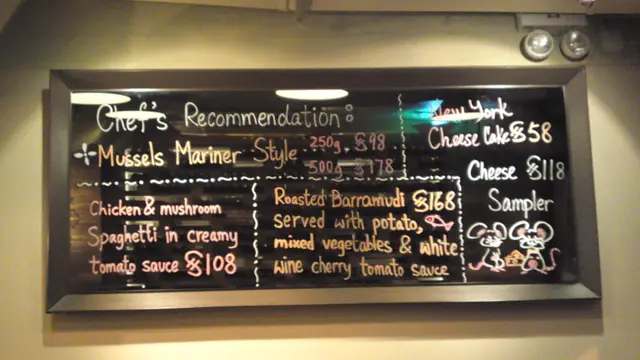 Chef's Recommendation:
Mussels Mariner Style 250g. $98
500g. $178
Chicken & mushroom
Spaghetti in creamy
tomato sauce $108
Roasted Barramudi $168
served with potato,
mixed vegetables & white
wine cherry tomato sauce
New York
Cheese Cake $58
Cheese $118
Sampler